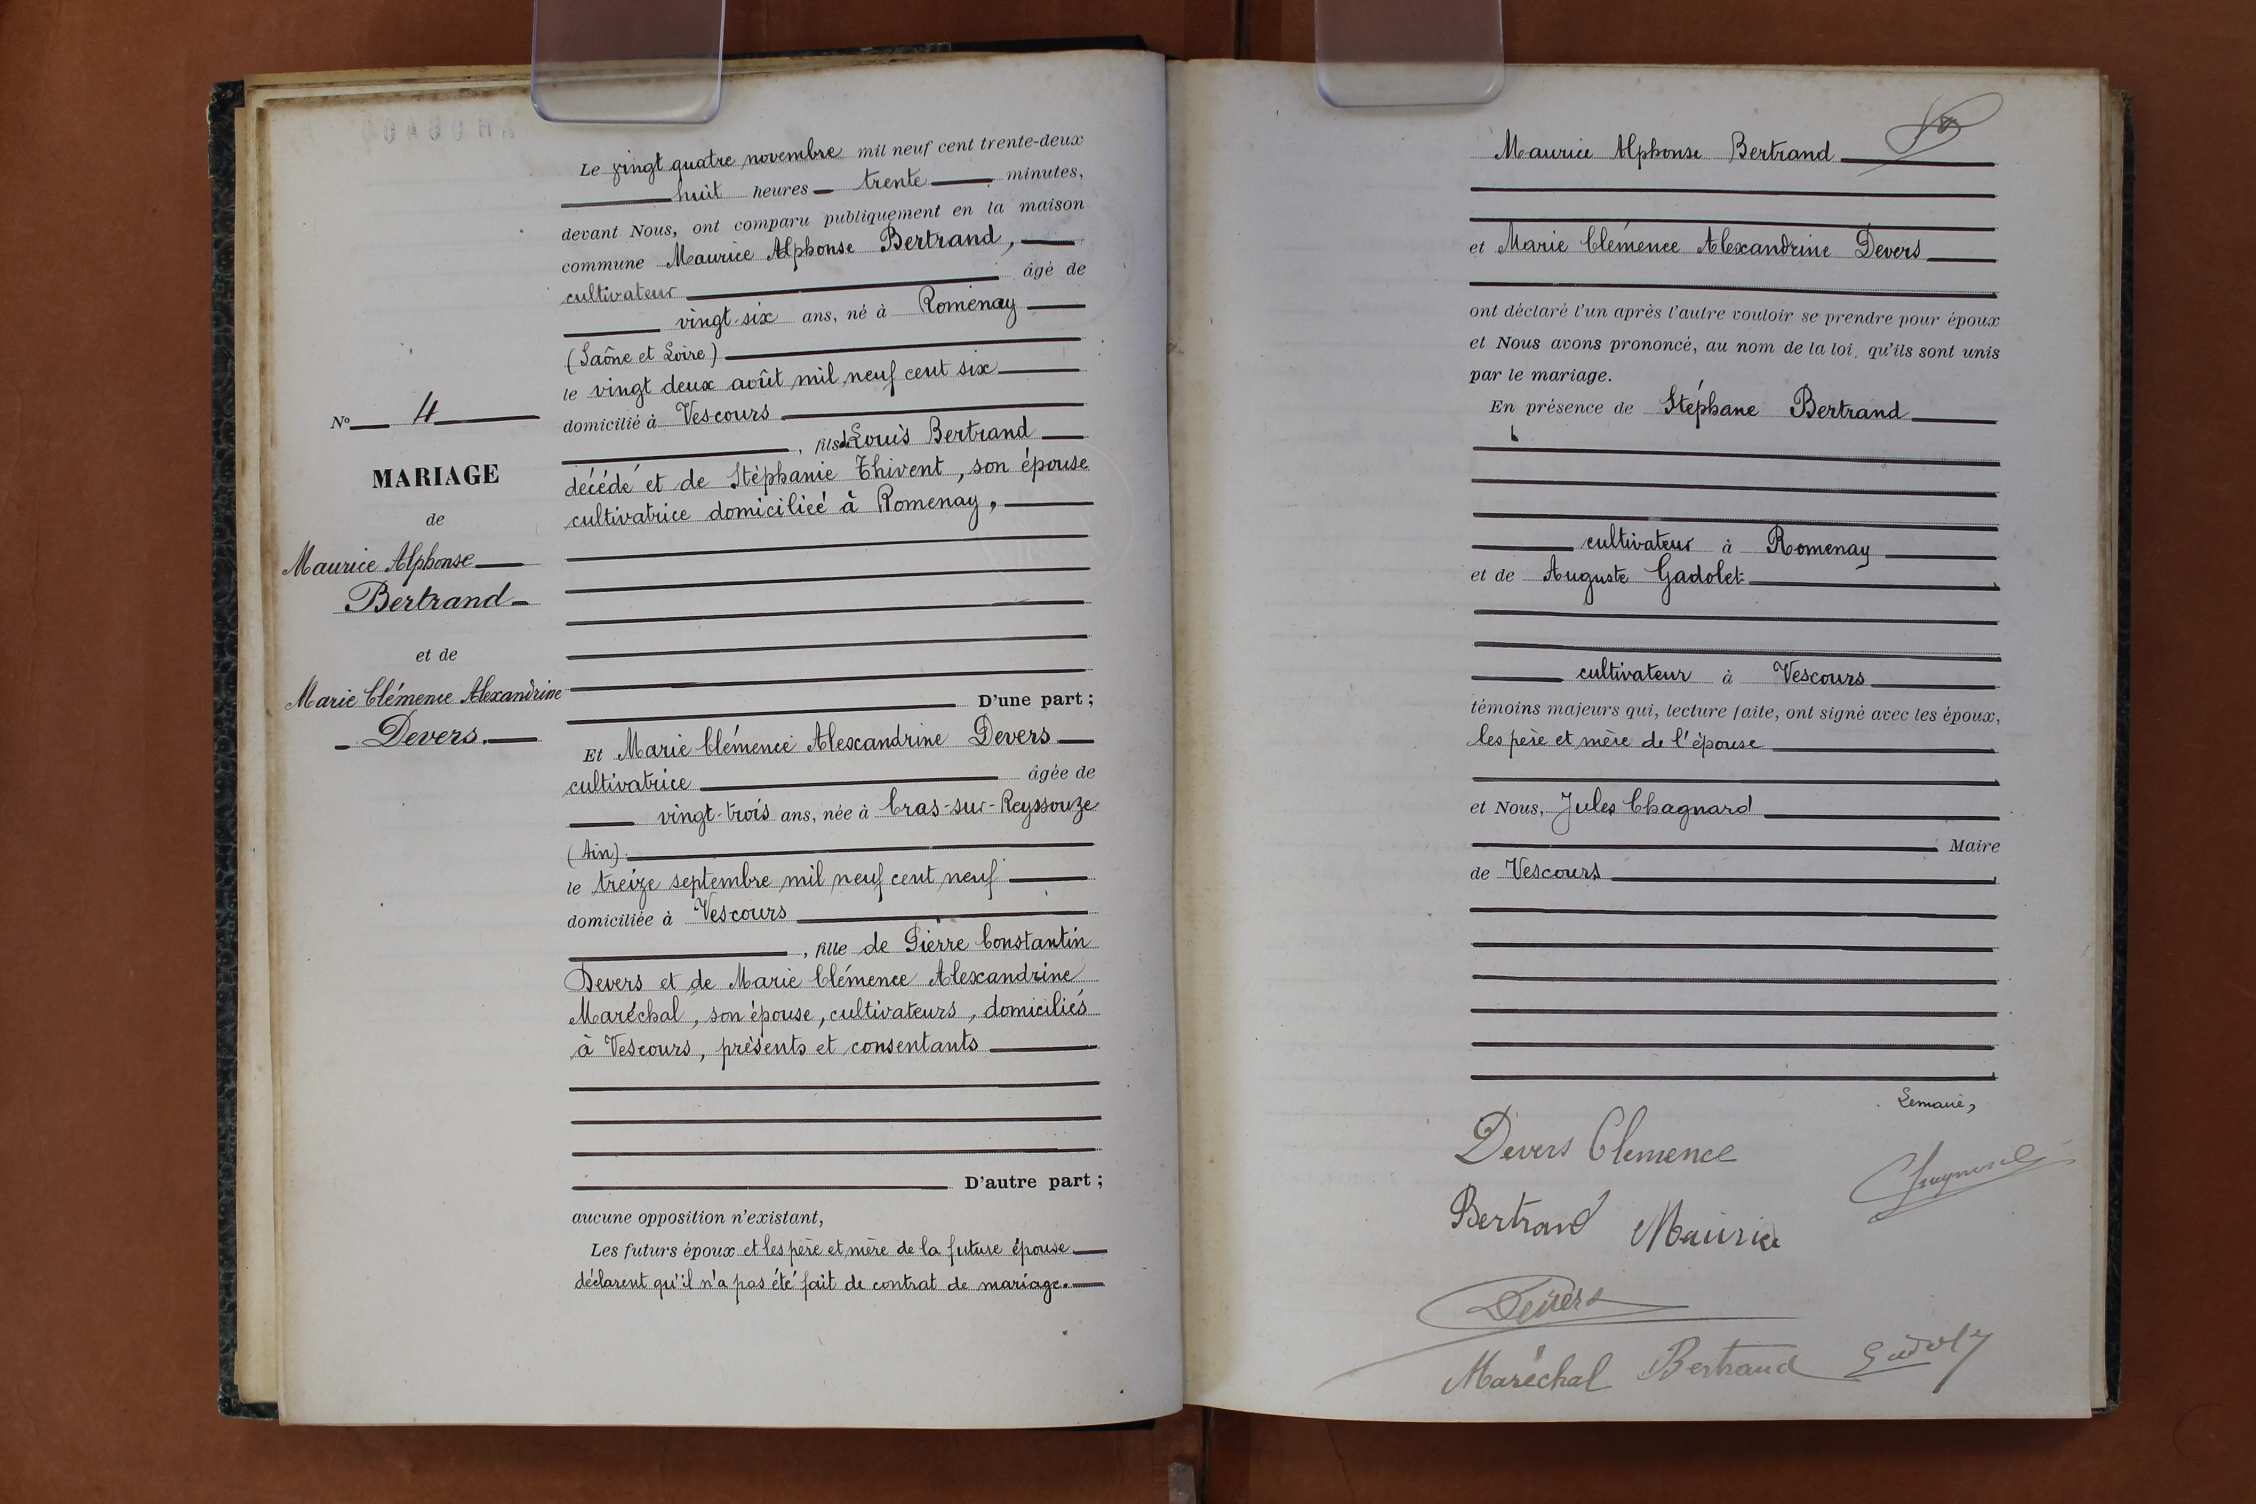 Le vingt quatre novembre mil neuf cent trente-deux
huit heures trente minutes,
devant Nous, ont comparu publiquement en la maison
commune Maurice Alphonse Bertrand,
cultivateur âgé de
vingt-six ans, né à Romenay
(Saône et Loire)
le vingt deux août mil neuf cent six
domicilié à Vescours
, fils de Louis Bertrand
décédé et de Stéphanie Thivent, son épouse
cultivatrice domiciliée à Romenay.
D'une part ;
Nº 4
MARIAGE
de
Maurice Alphonse
Bertrand
et de
Marie Clémence Alexandrine
Devers.
Et Marie Clémence Alexandrine Devers
cultivatrice âgée de
vingt-trois ans, née à Cras-sur-Reyssouze
(Ain)
le treize septembre mil neuf cent neuf
domiciliée à Vescours
, fille de Pierre Constantin
Devers et de Marie Clémence Alexandrine
Maréchal, son épouse, cultivateurs, domiciliés
à Vescours, présents et consentants
D'autre part ;
aucune opposition n'existant,
Les futurs époux et les père et mère de la future épouse
déclarent qu'il n'a pas été fait de contrat de mariage.
Maurice Alphonse Bertrand
et Marie Clémence Alexandrine Devers
ont déclaré l'un après l'autre vouloir se prendre pour époux
et Nous avons prononcé, au nom de la loi, qu'ils sont unis
par le mariage.
En présence de Stéphane Bertrand
cultivateur à Romenay
et de Auguste Gadolet
cultivateur à Vescours
témoins majeurs qui, lecture faite, ont signé avec les époux,
les père et mère de l'épouse
et Nous, Jules Chagnard
Maire
de Vescours
Le maire,
Devers Clemence
Chagnard
Bertrand Maurice
Devers
Maréchal Bertrand